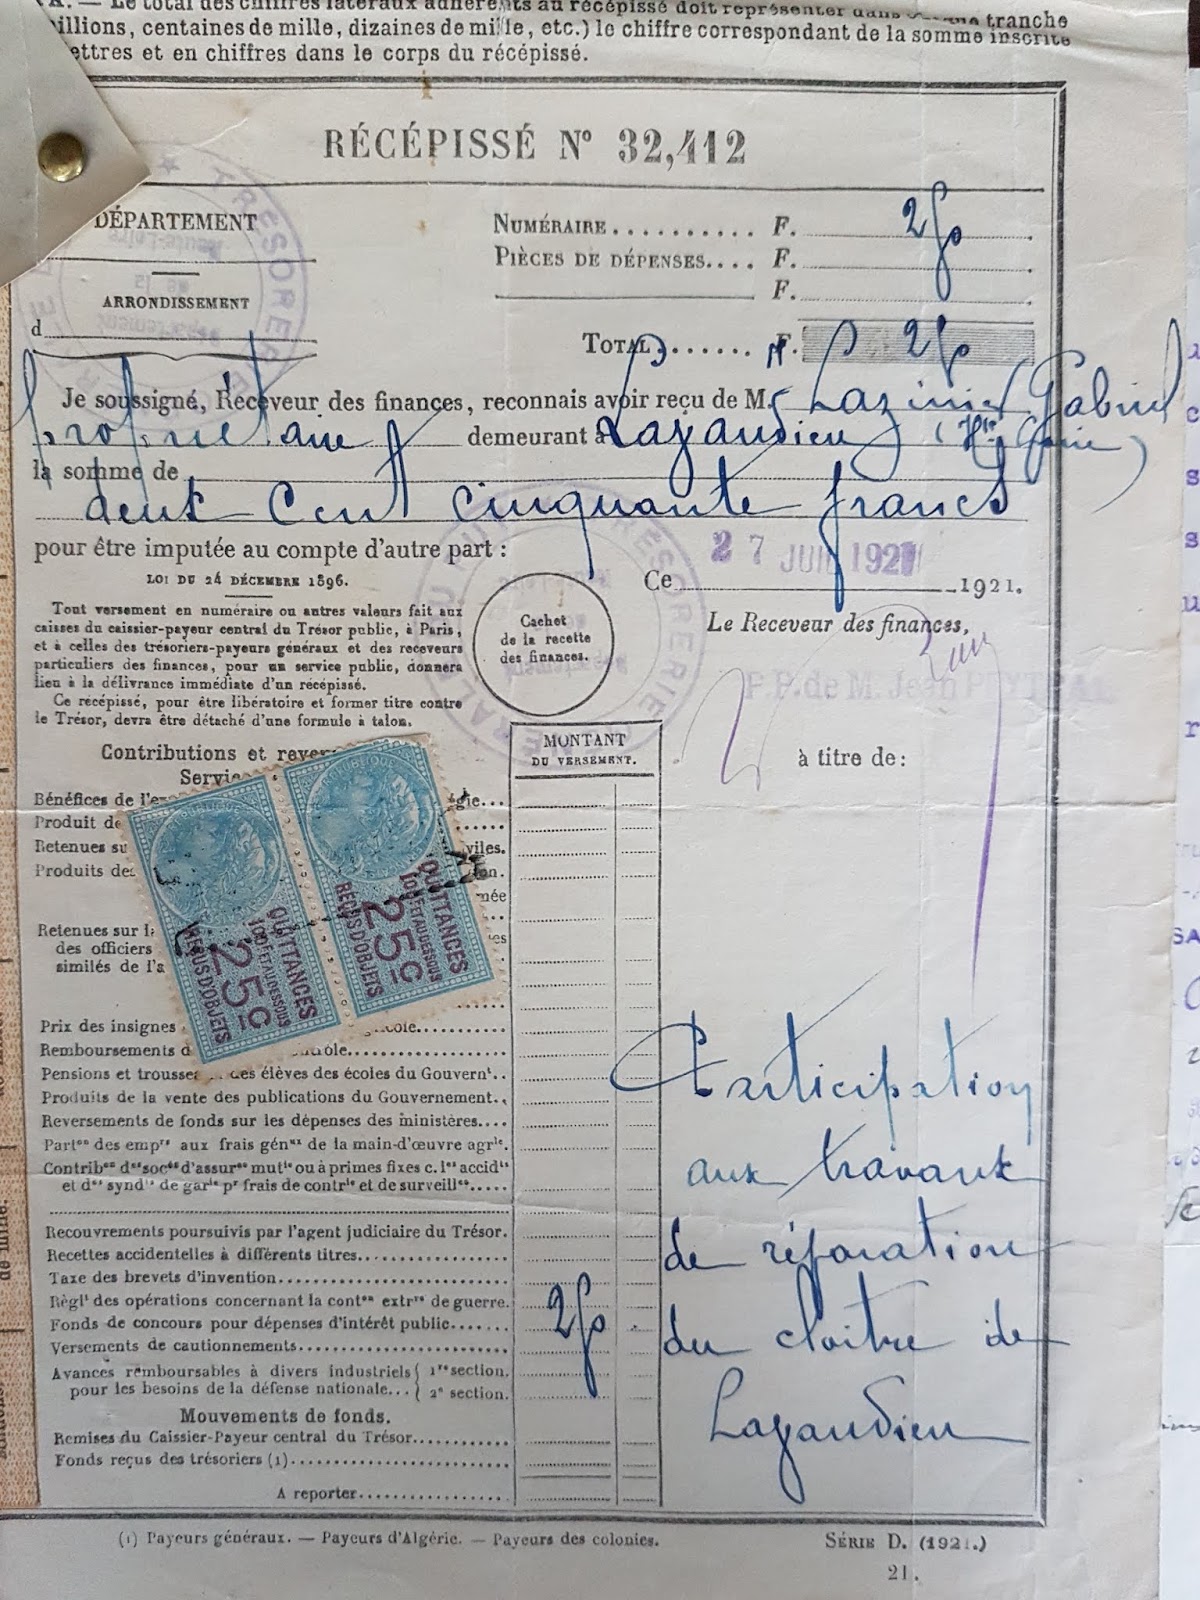 Le total des chiffres latéraux adhérents au récépissé doit représenter dans tranche
illions, centaines de mille, dizaines de mille, etc.) le chiffre correspondant de la somme inscrite
ettres et en chiffres dans le corps du récépissé.
RÉCÉPISSÉ N° 32,412
DÉPARTEMENT
ARRONDISSEMENT
d
NUMÉRAIRE.......... F. 250
PIÈCES DE DÉPENSES.... F.
F.
TOTAL....... F. 250
TRESORERIE
Haute-Loire
de la
département
Je soussigné, Receveur des finances, reconnais avoir reçu de M. Gabriel
propriétaire demeurant à Lavaudieu
la somme de
deux cent cinquante francs
pour être imputée au compte d'autre part :
27 JUIN 1921
Ce 1921.
LOI DU 24 DÉCEMBRE 1896.
Tout versement en numéraire ou autres valeurs fait aux
caisses du caissier-payeur central du Trésor public, à Paris,
et à celles des trésoriers-payeurs généraux et des receveurs
particuliers des finances, pour un service public, donnera
lieu à la délivrance immédiate d'un récépissé.
Ce récépissé, pour être libératoire et former titre contre
le Trésor, devra être détaché d'une formule à talon.
Cachet
de la recette
des finances.
Le Receveur des finances,
P.P. de M. Jean
à titre de :
Contributions et
MONTANT
DU VERSEMENT.
Bénéfices de gie...
Produit de
Retenues su viles.
Produits des on.
née
Retenues sur
des officiers
similés de l'a
QUITTANCES
100F ET AU DESSOUS
25c
REÇUS D'OBJETS
QUITTANCES
100F ET AU DESSOUS
25c
REÇUS D'OBJETS
Prix des insignes cole..........
Remboursements d rôle..........
Pensions et trousse des élèves des écoles du Gouvernt..
Produits de la vente des publications du Gouvernement..
Reversements de fonds sur les dépenses des ministères....
Parton des emprs aux frais génux de la main-d'œuvre agrle.
Contribon des socés d'assures mutle ou à primes fixes c. les accidts
et des synds de garle pr frais de contrle et de surveillce.....
Recouvrements poursuivis par l'agent judiciaire du Trésor.
Recettes accidentelles à différents titres..........
Taxe des brevets d'invention..........
Règlt des opérations concernant la conton extrre de guerre.
Fonds de concours pour dépenses d'intérêt public....... 250
Versements de cautionnements..........
Avances remboursables à divers industriels { 1re section.
pour les besoins de la défense nationale... { 2e section.
Mouvements de fonds.
Remises du Caissier-Payeur central du Trésor..........
Fonds reçus des trésoriers (1)..........
A reporter..........
Participation
aux travaux
de réparation
du cloître de
Lavaudieu
(1) Payeurs généraux. — Payeurs d'Algérie. — Payeurs des colonies.
SÉRIE D. (1921.)
21.